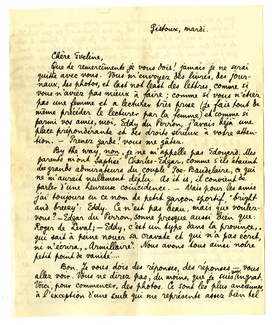 Gistoux, mardi.
Chère Eveline,
Que de remerciements je vous dois! jamais je ne serai
quitte avec vous. Vous m'envoyez des livres, des jour-
naux, des photos, et last not least des lettres, comme si
vous n'aviez pas mieux à faire; comme si vous n'étiez
pas une femme et à lectures très prise (je fais tout de
même précéder le lectures par la femme) et comme si
parmi vos amis, moi, Eddy du Perron, j'avais déjà une
place prépondérante et des droits sérieux à votre atten-
tion. – Prenez garde: vous me gâtez.
By the way, non, je ne m'appelle pas Edouard. Mes
parents m'ont baptisé Charles-Edgar, comme s'ils étaient
des grands admirateurs du couple Poe-Baudelaire, ce qui
ne m'aurait nullement déplu. Tel et si, il convient de
parler d'une heureuse coïncidence. – Mais pour les amis
j'ai toujours eu ce nom de petit garçon sportif, "bright
and breezy": Eddy. Ce n'est pas beau, mais que voulez-
vous? – Edgar du Perron, sonne presque aussi bien que:
Roger de Lival; – Eddy, c'est un type dans la province,
qui sait à peine nouer sa cravate et qui n'a pas écrit,
ne n'écrira, "Armillaire". Nous avons tous ainsi notre
petit point de vanité...
Bon. Je vous dois des réponses, des réponses – vous
allez voir. Vous ne direz pas, du moins, que je suis ingrat.
Voici, pour commencer, des photos. Ce sont les plus anciennes
à l'exception d'une seule qui me représente assez bien tel